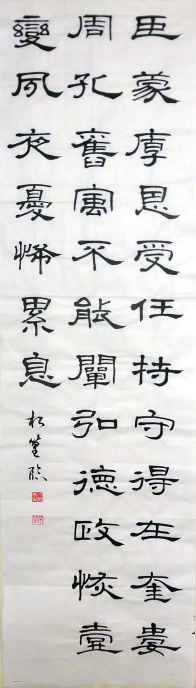 臣蒙厚恩受任持守得在奎婁
周孔舊寓不能闡弘德政恢壹
變夙夜憂怖累息
臨